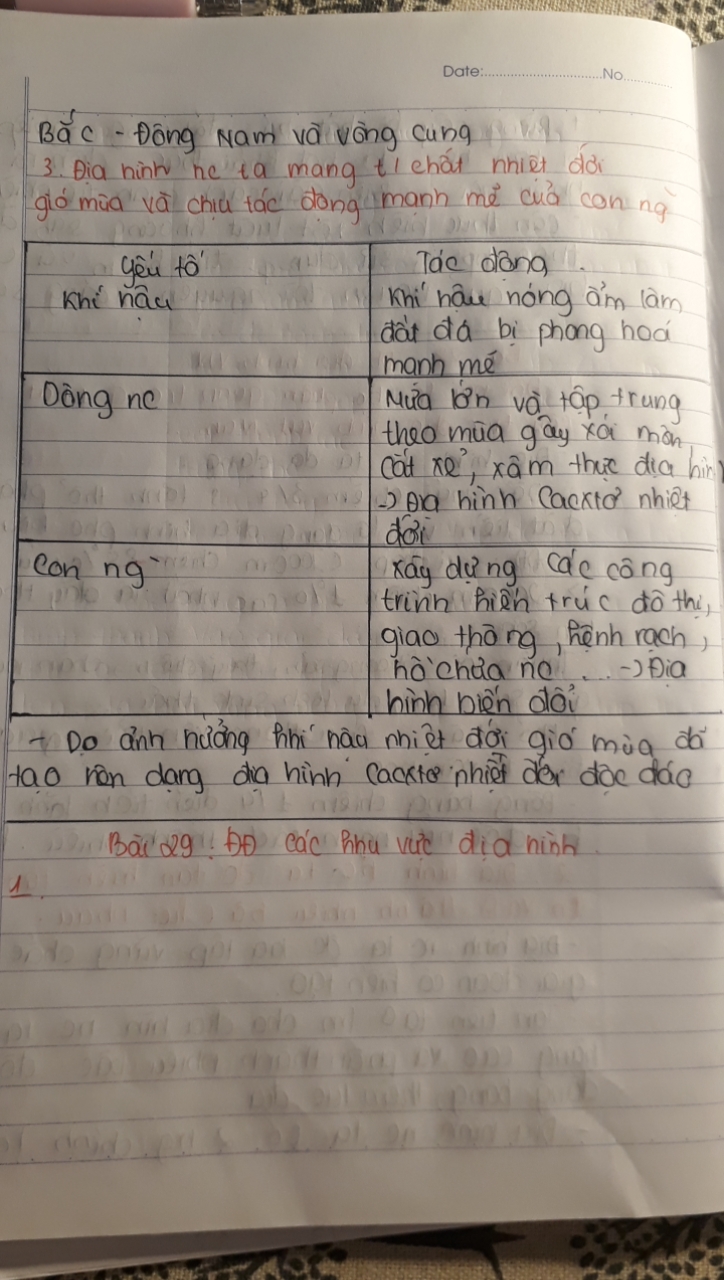 Date:................................No.............
Bắc - Đông Nam và vòng cung
3. Địa hình nc ta mang t/chất nhiệt đới
gió mùa và chịu tác động mạnh mẽ của con ng`
Yếu tố
Tác động
Khí hậu
Khí hậu nóng ẩm làm
đất đá bị phong hoá
mạnh mẽ
Dòng nc
Mưa lớn và tập trung
theo mùa gây xói mòn,
cắt xẻ, xâm thực địa hình
-> Địa hình Cacxtơ nhiệt
đới
Con ng`
Xây dựng các công
trình kiến trúc đô thị,
giao thông, kênh rạch,
hồ chứa nc ... -> Địa
hình biến đổi
- Do ảnh hưởng khí hậu nhiệt đới gió mùa đã
tạo nên dạng địa hình Cacxtơ nhiệt đới độc đáo
Bài 29: ĐĐ các khu vực địa hình
1.